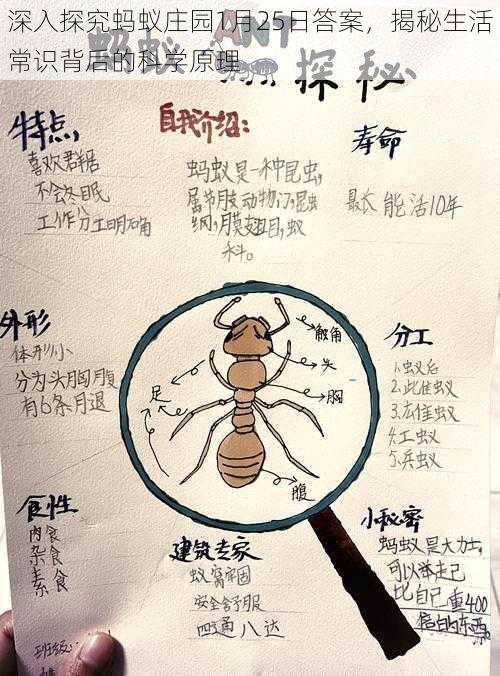 深入探究蚂蚁庄园1月25日答案，揭秘生活
常识背后的科学原理
蚂蚁 ANT 探秘
特点
喜欢群居
不会冬眠
工作分工明确
自我介绍：
蚂蚁是一种昆虫，
属节肢动物门，昆虫
纲，膜翅目，蚁
科。
寿命
最长能活10年
外形
体形小
分为头胸腹
有6条月退
触角
头
胸
足
腹
分工
1.蚁后
2.此佳蚁
3.左佳蚁
4.工蚁
5.兵蚁
食性
肉食
杂食
素食
建筑专家
蚁窝牢固
安全舒服
四通八达
小秘密
蚂蚁是大力士，
可以举走己
比自己重400
倍的东西。
班级：